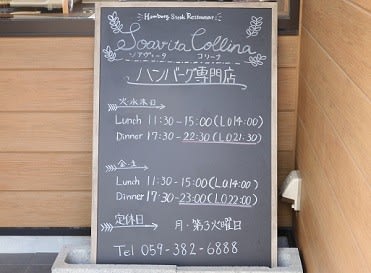 Hamburg Steak Restaurant
Soavita Collina
ソアヴィータ コリーナ
ハンバーグ専門店
火・水・木・日
Lunch 11:30-15:00(LO14:00)
Dinner 17:30-22:30(LO21:30)
金・土
Lunch 11:30-15:00(LO14:00)
Dinner 17:30-23:00(LO22:00)
定休日 月・第3火曜日
Tel 059-382-6888